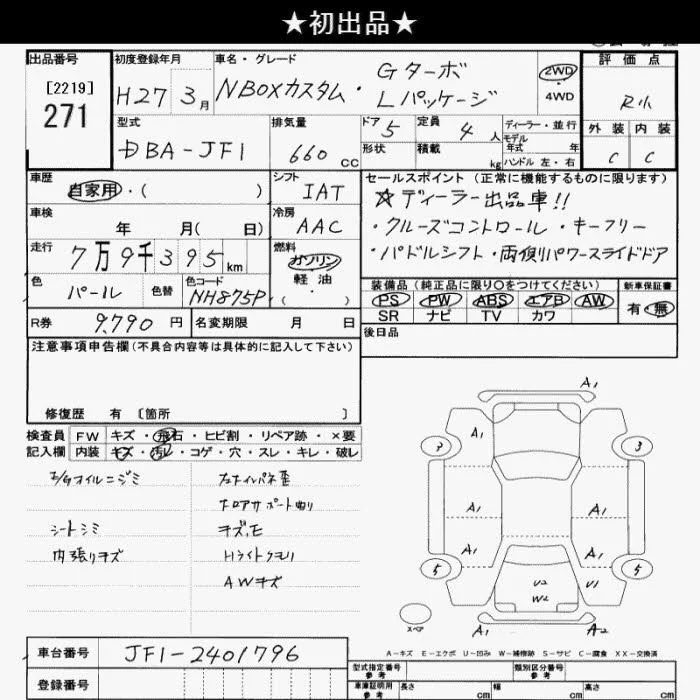 ★初出品★
出品番号
[2219]
271
初度登録年月
H27 3月
車名・グレード
NBOXカスタム・ Gターボ Lパッケージ
2WD
・
4WD
評価点
R小
外装 内装
C C
型式
DBA-JF1
排気量
660 cc
ドア 5
形状
定員 4 人
積載 kg
ディーラー・並行
モデル
年式 年
ハンドル 左・右
車歴
自家用・( )
シフト
IAT
車検
年 月( 日)
冷房
AAC
走行
7万9千395km
燃料
ガソリン
軽油
・
( )
色
パール
色替
色コード
NH875P
セールスポイント (正常に機能するものに限ります)
☆ディーラー出品車!!
・クルーズコントロール・キーフリー
・パドルシフト・両側パワースライドドア
装備品 (純正品に限り○をつけてください)
PS PW ABS エアB AW
SR ナビ TV カワ
新車保証書
有・無
R券 9,790 円
名変期限 月 日
後日品
注意事項申告欄(不具合内容等は具体的に記入して下さい)
修復歴 有 〔箇所 〕
検査員
記入欄
FW キズ・飛石・ヒビ割・リペア跡・×要
内装 キズ・汚レ・コゲ・穴・スレ・キレ・破レ
E/Gオイルニジミ
シートシミ
内張りキズ
コアサポート曲り
キズ,E
Hライトクモリ
AWキズ
A1
A1
7
3
A1
A1
A1
A1
5
5
U2
W2
U1
A1
A2
スペア
A-キズ E-エクボ U-凹み W-補修跡 S-サビ C-腐食 XX-交換済
車台番号
JF1-2401796
登録番号
型式指定番号
参考
類別区分番号
参考
車庫証明用
参考
長さ cm
幅 cm
高さ cm